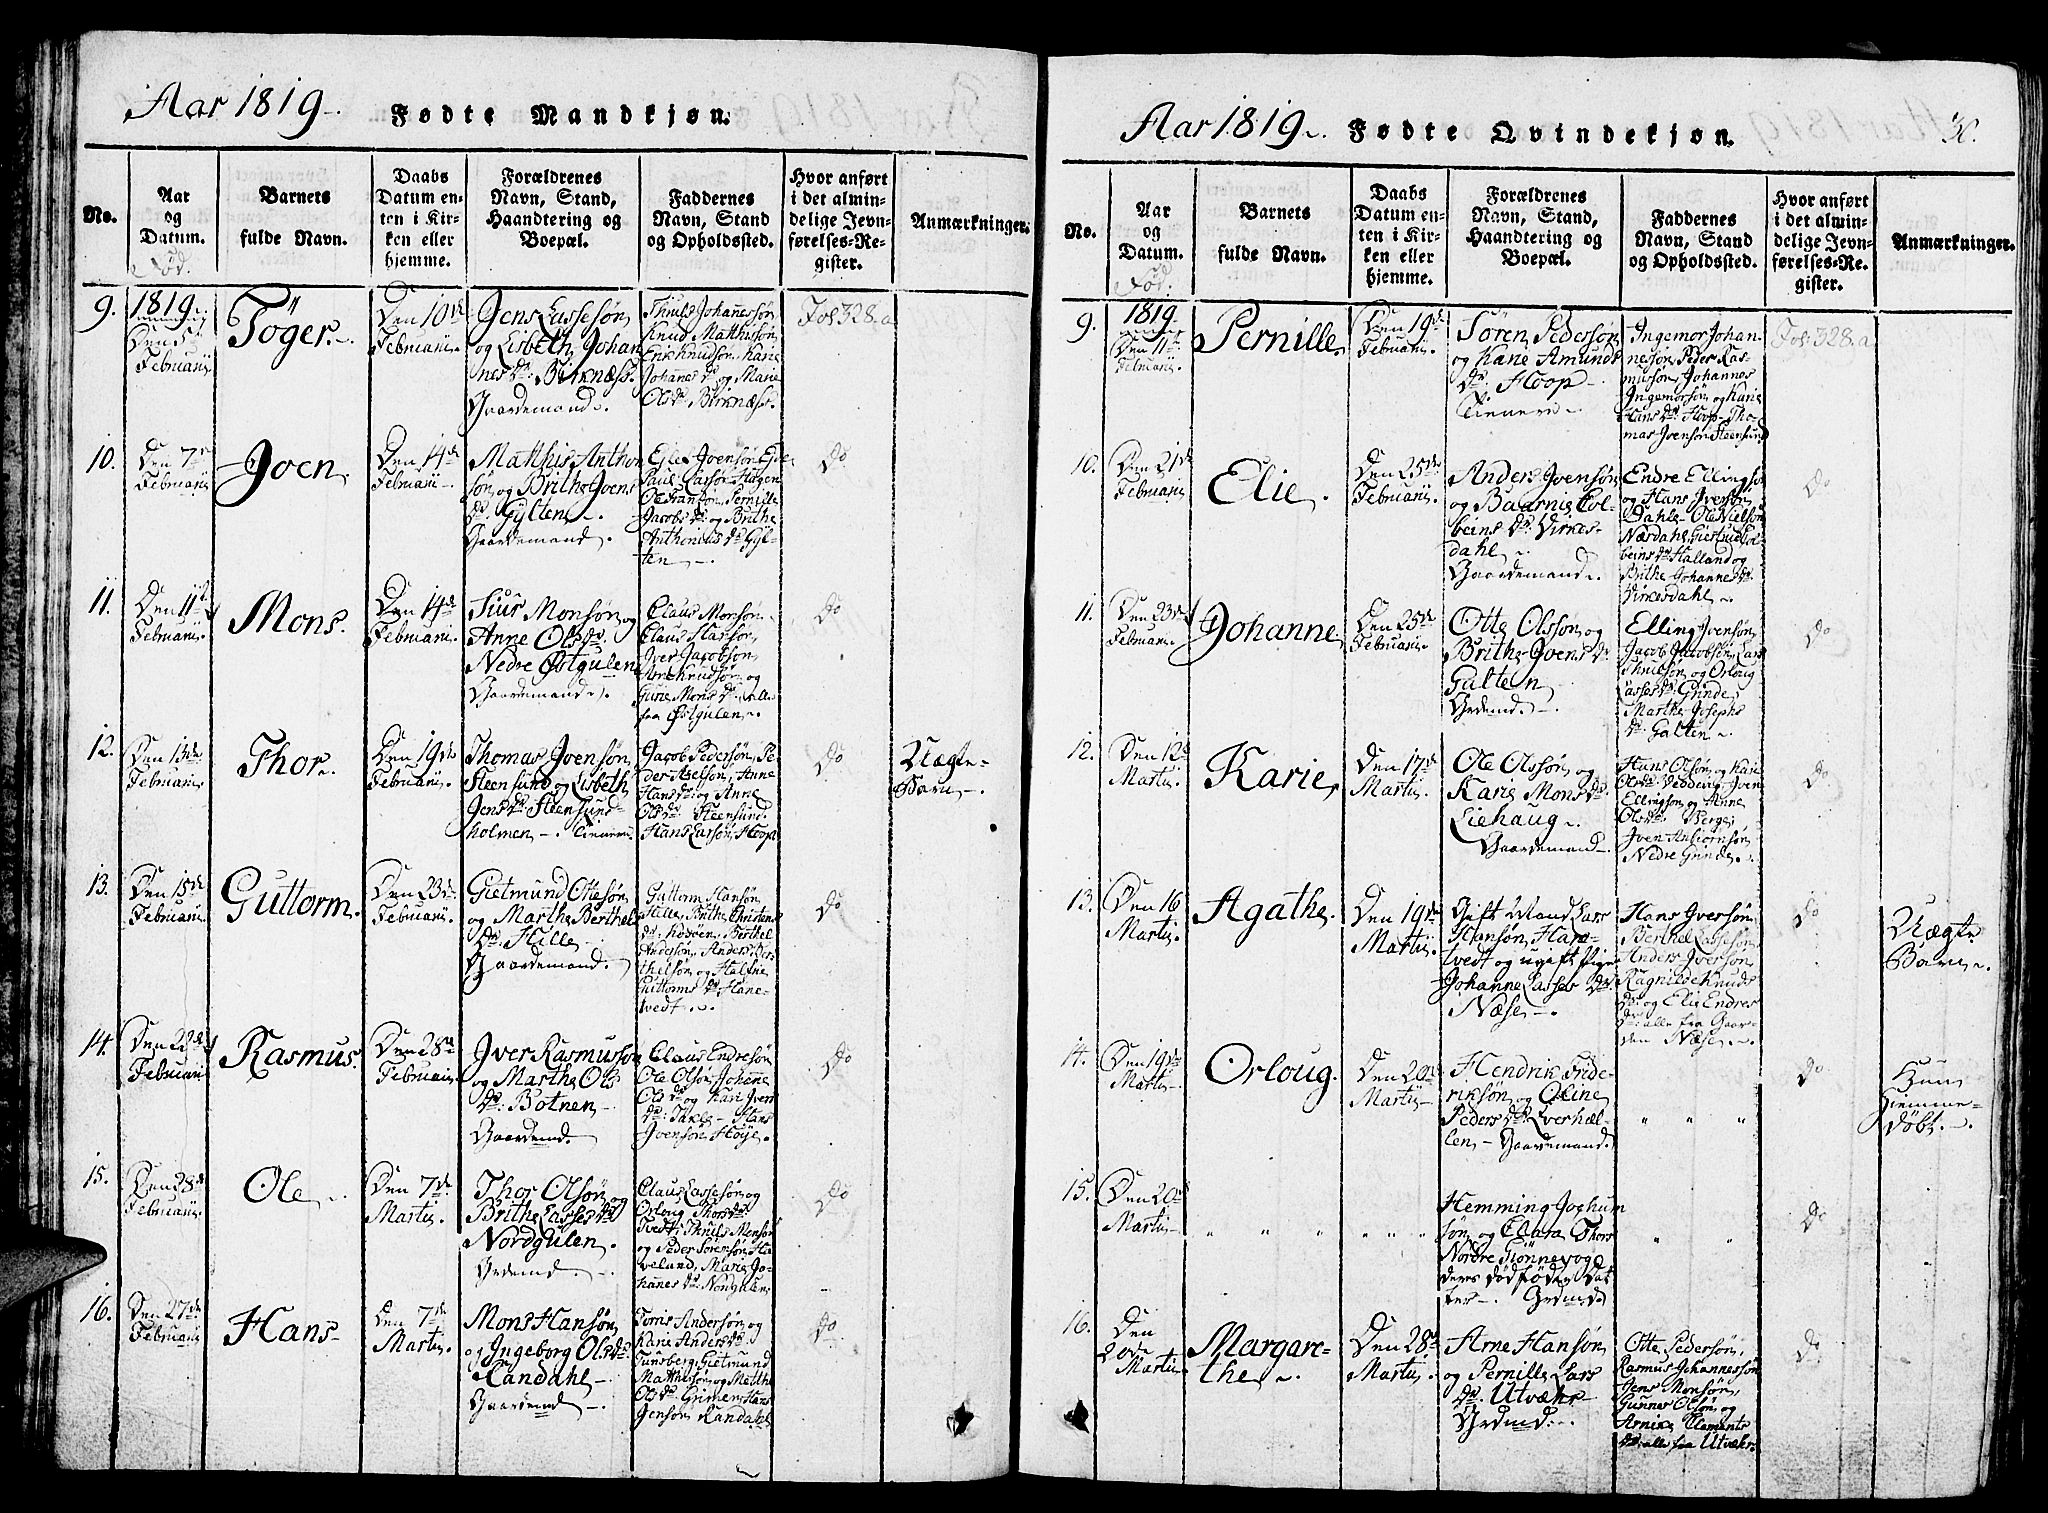 Aar 1819. Fødte Mandkjøn.
No.
Aar
og
Datum.
Fød.
Barnets
fulde Navn.
Daabs
Datum en-
ten i Kir-
ken eller
hjemme.
Forældrenes
Navn, Stand,
Haandtering og
Boepæl.
Faddernes
Navn, Stand
og Opholdssted.
Hvor anført
i det almin-
delige Jevn-
førelses-Re-
gister.
Anmærkninger.
9.
1819.
Den 5te
Februarii
Töger.
Den 10de
Februarii.
Jens Lassesøn
og Lisbeth Johan
nes Dr. Birknæss.
Gaardemand.
Thruls Johannessøn
Knud Matthissøn
Erik Knudsøn, Karie
Johannes Dr og Marie
Ols Dr. Birknæss.
Fol 328. a
10.
Den 7de
Februarii
Joen
Den 14de
Februarii.
Matthis Anthon
søn og Brithe Joens
Dr. Gylten.
Gaardemand.
Jacobs Dr. og Brithe
Anthonius Dr. Gyl-
ten.
Do
11.
Den 11te
Februarii.
Mons.
Den 14de
Februarii.
Siur Monsøn og
Anne Ols Dr
Nedre Østgulen
Gaardemand.
Claus Monsøn
Claus Larsøn,
Iver Jacobsøn
Knudsøn og
Mons Dr. alle
fra Østgulen.
Do
12.
Den 13de
Februarii
Thor.
Den 19de
Februarii.
Thomas Jvensøn,
Steensund og Lisbeth
Jens Dr. Steensund-
holmen. Tienere
Jacob Pedersøn, Pe
der Assesøn, Anne
Hans Dr. og Anne
Ols Dr. Steensund.
Hans Larsøn, Hoop
Do
Uægte
Barn.
13.
Den 15de
Februarii.
Guttorm.
Den 23de
Februarii.
Gietmund Ottesøn
og Marthe Berthels
Dr. Hille
Gaardemand.
Guttorm Hansøn
Hille, Brithe Christens
Dr. Kodøen, Berthel
Andersøn, Anders Ber
thelsøn og Halfrie
Guttorms Dr. Hane-
vedt.
Do
14.
Den 22de
Februarii
Rasmus.
Den 28de
Februarii.
Jver Rasmussøn
og Marthe Ols
Dr. Botnen
Gaardmd.
Claus Endresøn
Ole Olsøn, Johanne
Ols Dr og Kari Jvers
Dr. Takle. Hans
Jvensøn Høije.
Do
15.
Den 28de
Februarii.
Ole
Den 7de
Martii.
Thor Olsøn og
Brithe Lasses Dr
Nordgulen.
Grdemd.
Claus Lassesøn og
Orloug Thors Dr
Tvedt, Thruls Monsøn
og Peder Sørensøn Ha
velund, Marie Jo-
hannes Dr. Nordgulen
Do
16.
Den 27de
Februarii
Hans
Den 7de
Martii.
Mons Hansøn,
og Ingeborg Ols Dr.
Randahl
Gaardemd.
Torris Andersøn og
Karie Anders Dr
Tunsberg, Gietmund
Matthissøn og Marthe
Ols Dr. Grimen, Hans
Jensøn Randahl
Do.
Aar 1819. Fødte Qvindekjøn.
30.
No.
Aar
og
Datum.
Fød.
Barnets
fulde Navn.
Daabs
Datum en-
ten i Kir-
ken eller
hjemme.
Forældrenes
Navn, Stand,
Haandtering og
Boepæl.
Faddernes
Navn, Stand
og Opholdssted.
Hvor anført
i det almin-
delige Jevn-
førelses-Re-
gister.
Anmærkninger.
9.
1819
Den 11te
Februarii.
Pernille
Den 19de
Februarii.
Søren Pedersøn
og Karie Amunds
Dr. Hoop
Tienere
Ingemor Johan-
nessøn, Peder Ras-
mussøn, Johannes
Ingemorsøn og Karie
Hans Dr. Hoop. Tho-
mas Jvensøn Steensund
Fol. 328. a.
10.
Den 21de
Februarii
Elie.
Den 25de
Februarii.
Anders Jvensøn
og Baarnie Col-
beins Dr. Virkes-
dahl
Gaardemand.
Endre Ellingsø
og Hans Jversøn
Dahle. Ole Nielsøn
Nærdahl, Giertrud Col-
beins Dr Halland og
Brithe Johannes Dr.
Virkesdahl.
Do
11.
Den 23de
Februarii.
Johanne
Den 25de
Februarii.
Otte Olssøn og
Brithe Jvens Dr.
Galten
Grdemd.
Elling Jvensøn
Jacob Jacobsøn, Lars
Thrulsøn og Orloug
Lasses Dr. Grinde,
Marthe Josephs
Dr. Galten.
Do
12.
Den 12te
Martii.
Karie
Den 17de
Martii.
Ole Olssøn og
Karie Mons Dr
Liehaug.
Gaardemand.
Hans Olsøn og Karie
Ols Dr Vedvig, Jven
Ellingsøn og Anne
Ols Dr. Berge,
Jven Anbiørnsøn
Nedre Grinde.
Do
13.
Den 16
Martii.
Agathe.
Den 19de
Martii.
Gift Mand Lars
Hansøn Hane-
tvedt og ugift Pige
Johanne Lasses Dr.
Næse
Hans Jversøn
Berthel Lassesøn
Anders Jversøn
Ragnilde Knuds
Dr. og Elie Endres
Dr. alle fra Gaar-
den Næse.
Do
Uægte
Barn.
14.
Den 19de
Martii.
Orloug.
Den 20de
Martii.
Hendrik Fride-
riksøn og Oline
Peders Dr. Everhæl-
len. Gaardemand
" " "
Do
Hun
hiemme-
døbt.
15.
Den 20de
Martii
" " "
" " "
Hemming Joghum
søn og Clara Thors
Nordre Giønnes og
deres dødfødte Dat
ter. Grdmd.
" "
Do
16.
Den
20de
Martii
Margare-
the.
Den 28de
Martii
Arne Hansøn,
og Pernille Lars
Dr. Utvæhr
Grdmd.
Otte Pedersøn,
Rasmus Johannessøn
Jens Monsøn,
Gunner Olsøn og
Arnike Clements
Dr. alle fra Utvæhr.
Do